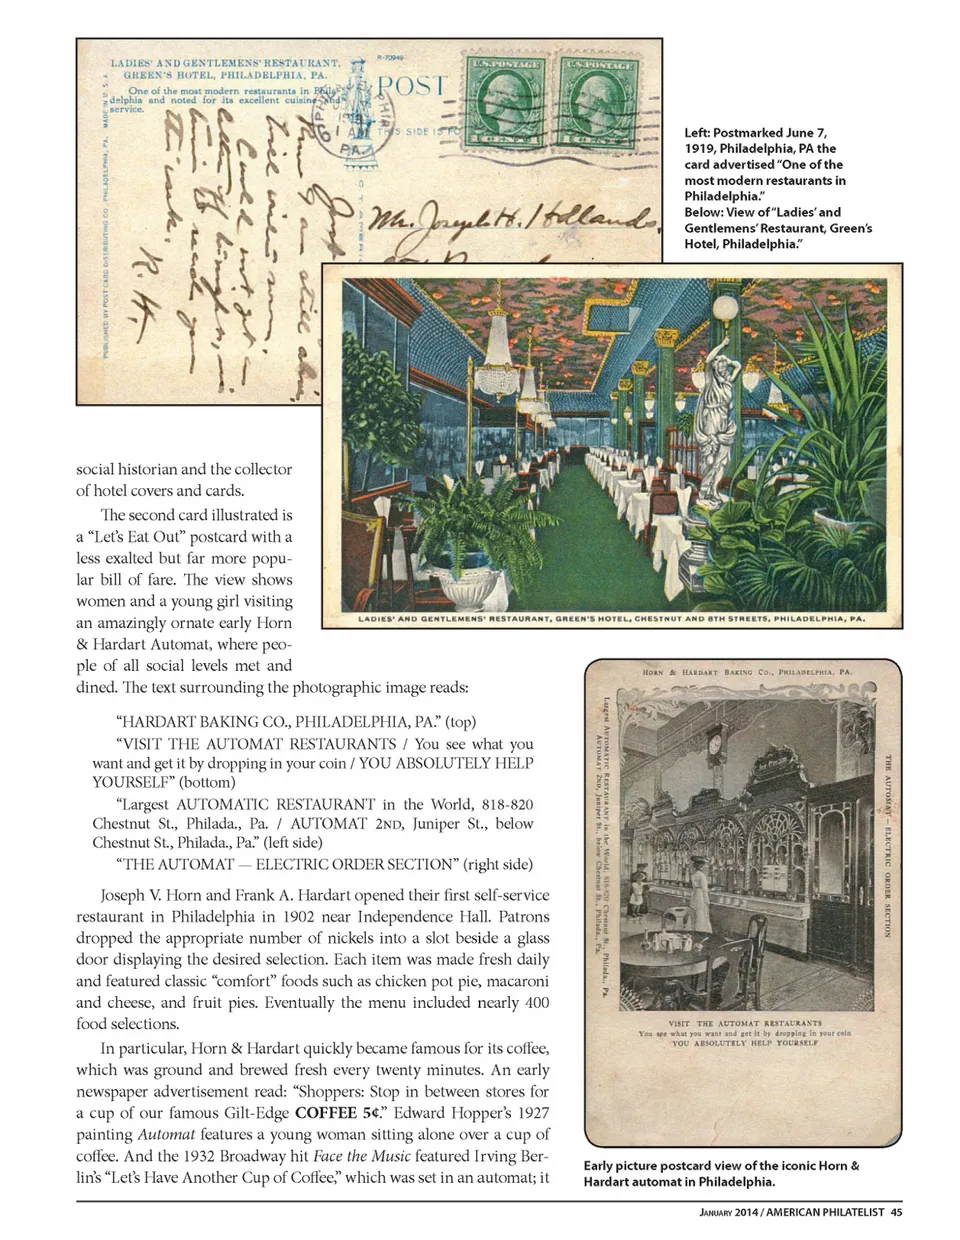 LADIES' AND GENTLEMENS' RESTAURANT,
GREEN'S HOTEL, PHILADELPHIA, PA.
One of the most modern restaurants in Phila-
delphia and noted for its excellent cuisine and
service.
R-70949
POST
THIS SIDE IS FO
PHILADELPHIA
1 AM
PA.
U.S. POSTAGE
1 CENT 1
U.S. POSTAGE
1 CENT 1
MADE IN U.S.A.
PUBLISHED BY POST CARD DISTRIBUTING CO., PHILADELPHIA, PA.
Mr. Joseph H. Hollands,
am still
could not get
this week.
Left: Postmarked June 7,
1919, Philadelphia, PA the
card advertised “One of the
most modern restaurants in
Philadelphia.”
Below: View of “Ladies’ and
Gentlemens’ Restaurant, Green’s
Hotel, Philadelphia.”
LADIES' AND GENTLEMENS' RESTAURANT, GREEN'S HOTEL, CHESTNUT AND 8TH STREETS, PHILADELPHIA, PA.
social historian and the collector
of hotel covers and cards.
The second card illustrated is
a “Let’s Eat Out” postcard with a
less exalted but far more popu-
lar bill of fare. The view shows
women and a young girl visiting
an amazingly ornate early Horn
& Hardart Automat, where peo-
ple of all social levels met and
dined. The text surrounding the photographic image reads:
“HARDART BAKING CO., PHILADELPHIA, PA.” (top)
“VISIT THE AUTOMAT RESTAURANTS / You see what you
want and get it by dropping in your coin / YOU ABSOLUTELY HELP
YOURSELF” (bottom)
“Largest AUTOMATIC RESTAURANT in the World, 818-820
Chestnut St., Philada., Pa. / AUTOMAT 2ND, Juniper St., below
Chestnut St., Philada., Pa.” (left side)
“THE AUTOMAT — ELECTRIC ORDER SECTION” (right side)
Joseph V. Horn and Frank A. Hardart opened their first self-service
restaurant in Philadelphia in 1902 near Independence Hall. Patrons
dropped the appropriate number of nickels into a slot beside a glass
door displaying the desired selection. Each item was made fresh daily
and featured classic “comfort” foods such as chicken pot pie, macaroni
and cheese, and fruit pies. Eventually the menu included nearly 400
food selections.
In particular, Horn & Hardart quickly became famous for its coffee,
which was ground and brewed fresh every twenty minutes. An early
newspaper advertisement read: “Shoppers: Stop in between stores for
a cup of our famous Gilt-Edge COFFEE 5¢.” Edward Hopper’s 1927
painting Automat features a young woman sitting alone over a cup of
coffee. And the 1932 Broadway hit Face the Music featured Irving Ber-
lin’s “Let’s Have Another Cup of Coffee,” which was set in an automat; it
HORN & HARDART BAKING CO., PHILADELPHIA, PA.
Largest AUTOMATIC RESTAURANT in the World, 818-820 Chestnut St., Philada., Pa.
AUTOMAT 2ND, Juniper St., below Chestnut St., Philada., Pa.
THE AUTOMAT — ELECTRIC ORDER SECTION
VISIT THE AUTOMAT RESTAURANTS
You see what you want and get it by dropping in your coin
YOU ABSOLUTELY HELP YOURSELF
Early picture postcard view of the iconic Horn &
Hardart automat in Philadelphia.
JANUARY 2014 / AMERICAN PHILATELIST 45